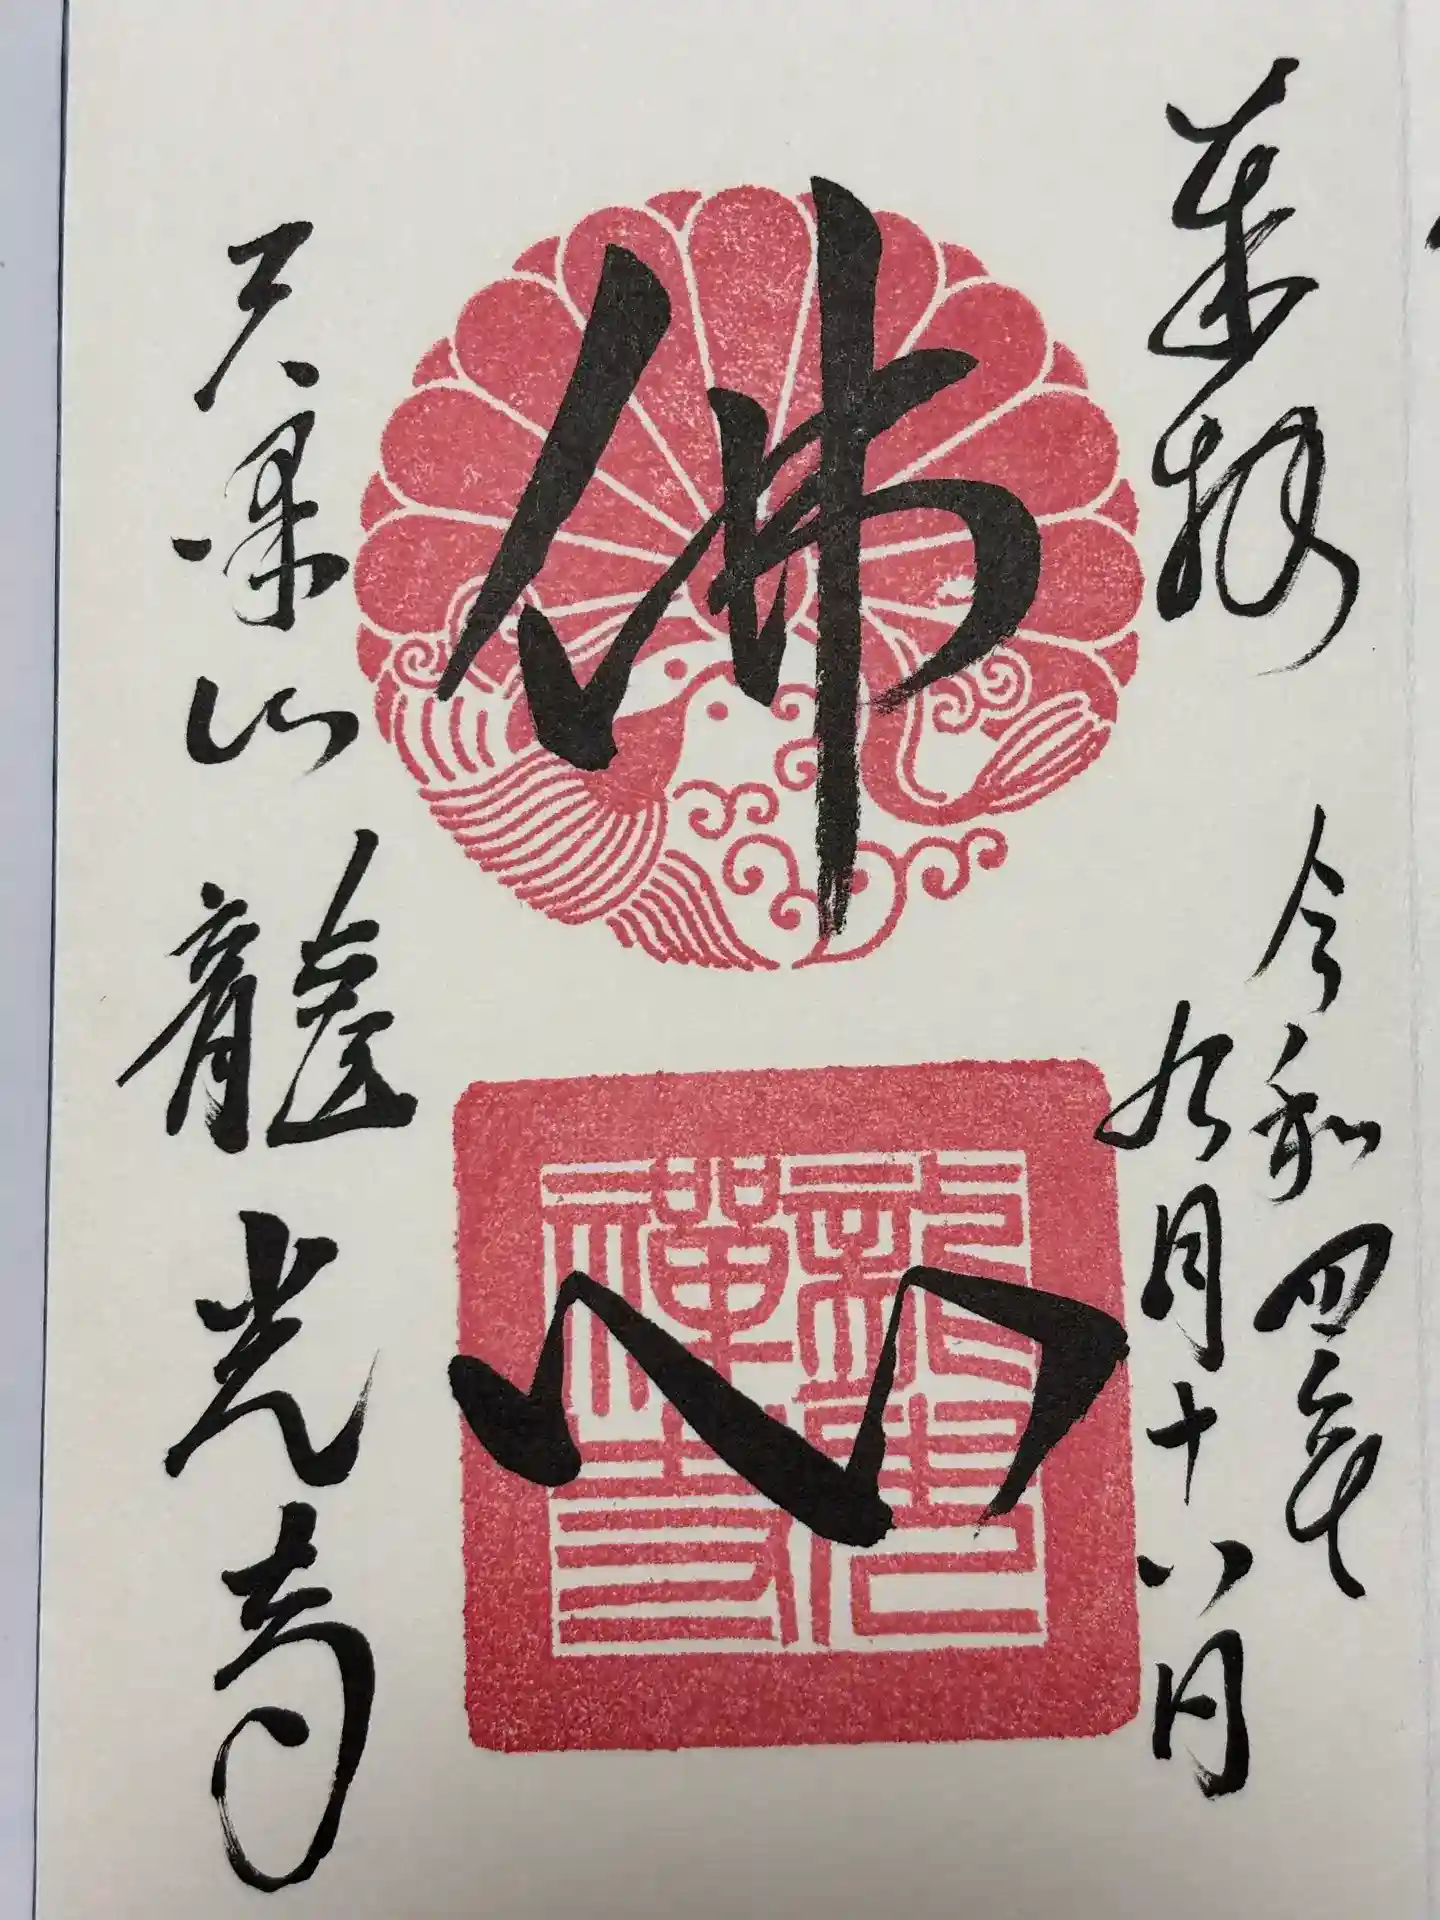 奉拝
令和四年
九月十八日
佛心
天 山 龍光寺
禪寺